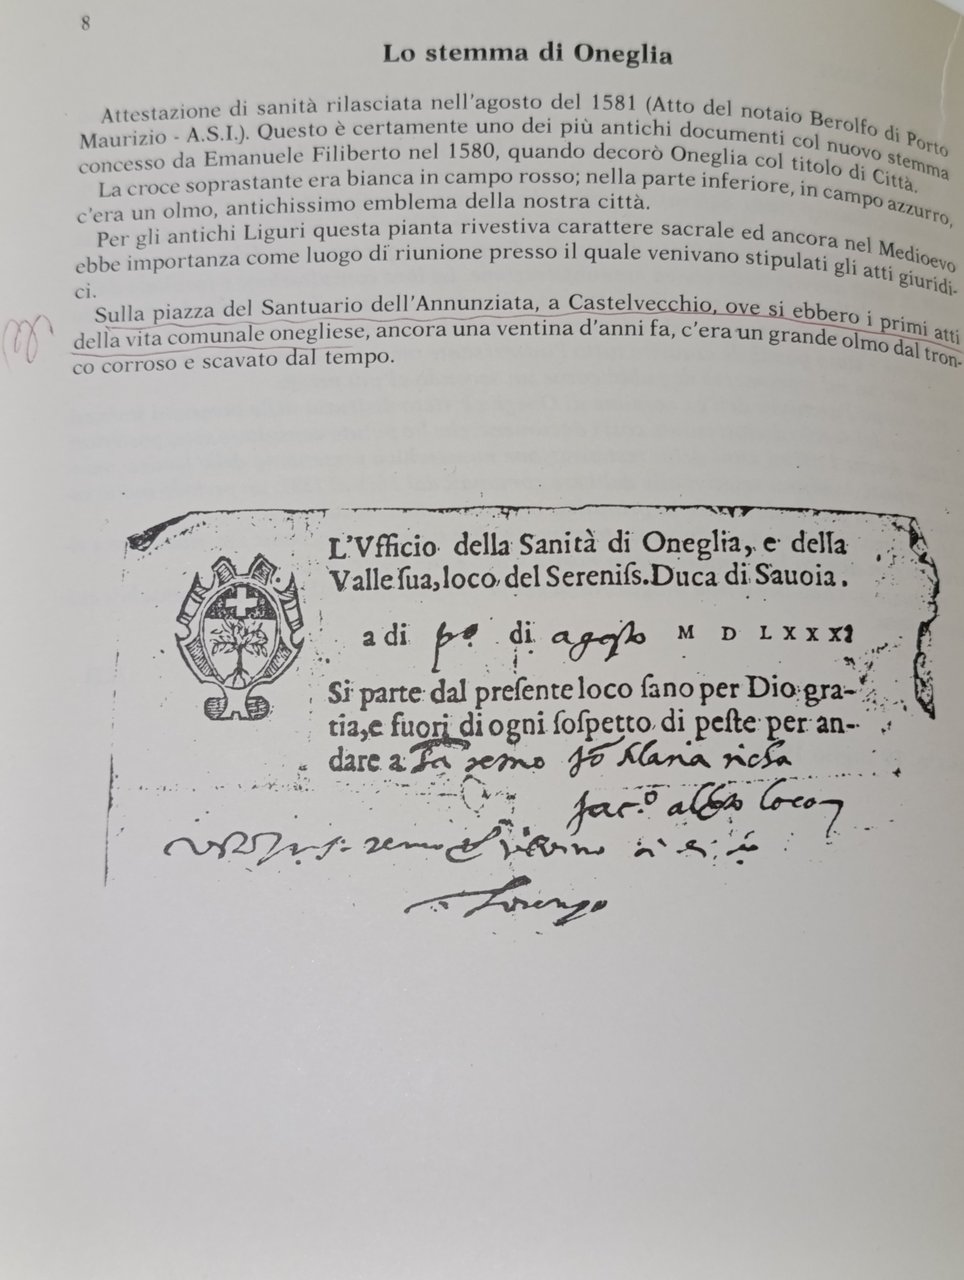 8
Lo stemma di Oneglia
Attestazione di sanità rilasciata nell'agosto del 1581 (Atto del notaio Berolfo di Porto
Maurizio - A.S.I.). Questo è certamente uno dei più antichi documenti col nuovo stemma
concesso da Emanuele Filiberto nel 1580, quando decorò Oneglia col titolo di Città.
La croce soprastante era bianca in campo rosso; nella parte inferiore, in campo azzurro,
c'era un olmo, antichissimo emblema della nostra città.
Per gli antichi Liguri questa pianta rivestiva carattere sacrale ed ancora nel Medioevo
ebbe importanza come luogo di riunione presso il quale venivano stipulati gli atti giuridi-
ci.
Sulla piazza del Santuario dell'Annunziata, a Castelvecchio, ove si ebbero i primi atti
della vita comunale onegliese, ancora una ventina d'anni fa, c'era un grande olmo dal tron-
co corroso e scavato dal tempo.
L'Vfficio della Sanità di Oneglia, e della
Valle ſua, loco del Sereniſs. Duca di Sauoia.
a di po di agosto M D LXXXI
Si parte dal preſente loco ſano per Dio gra-
tia, e fuori di ogni ſoſpetto di peſte per an-
dare a Sa remo Maria
loco
remo
Lorenzo